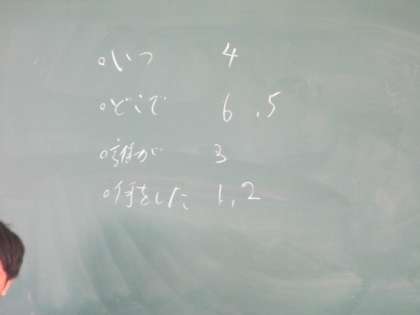 ○いつ 4
○どこで 6,5
○誰が 3
○何をした 1,2